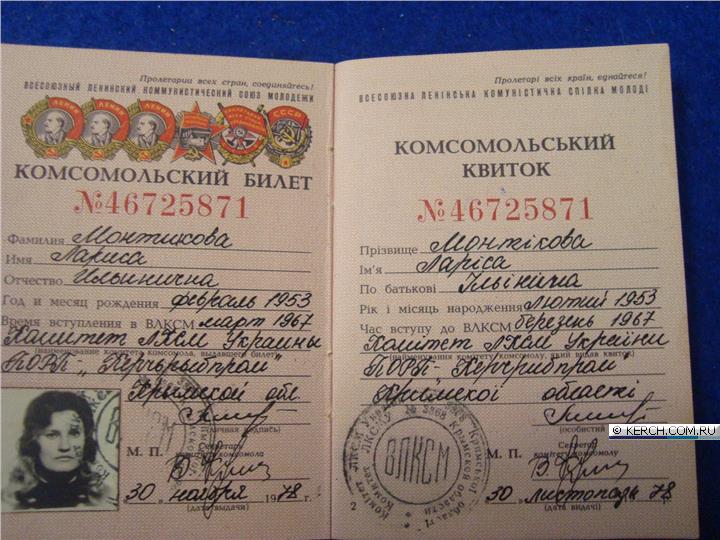 Пролетарии всех стран, соединяйтесь!
ВСЕСОЮЗНЫЙ ЛЕНИНСКИЙ КОММУНИСТИЧЕСКИЙ СОЮЗ МОЛОДЕЖИ
ЛЕНИН ЛЕНИН ЛЕНИН СССР
КОМСОМОЛЬСКИЙ БИЛЕТ
№46725871
Фамилия Монтикова
Имя Лариса
Отчество Ильинична
Год и месяц рождения февраль 1953
Время вступления в ВЛКСМ март 1967
Комитет ЛКСМ Украины
(наименование комитета комсомола, выдавшего билет)
ПОРП - "Керчьрыбпром"
Крымской обл.
(личная подпись)
М. П. Секретарь комитета комсомола
30 ноября 1978 г.
(дата выдачи)
Пролетарі всіх країн, єднайтеся!
ВСЕСОЮЗНА ЛЕНІНСЬКА КОМУНІСТИЧНА СПІЛКА МОЛОДІ
КОМСОМОЛЬСЬКИЙ
КВИТОК
№46725871
Прізвище Монтікова
Ім'я Ларіса
По батькові Ільінічна
Рік і місяць народження лютий 1953
Час вступу до ВЛКСМ березень 1967
Комітет ЛКСМ Украйни
(найменування комітету комсомолу, який видав квиток)
ПОРП - Керчрибпром
Кримскої області
(особистий
ВЛКСМ
М. П. Секретар
комітету комсомолу
30 листопада 78
(дата видачі)
2
© KERCH.COM.RU